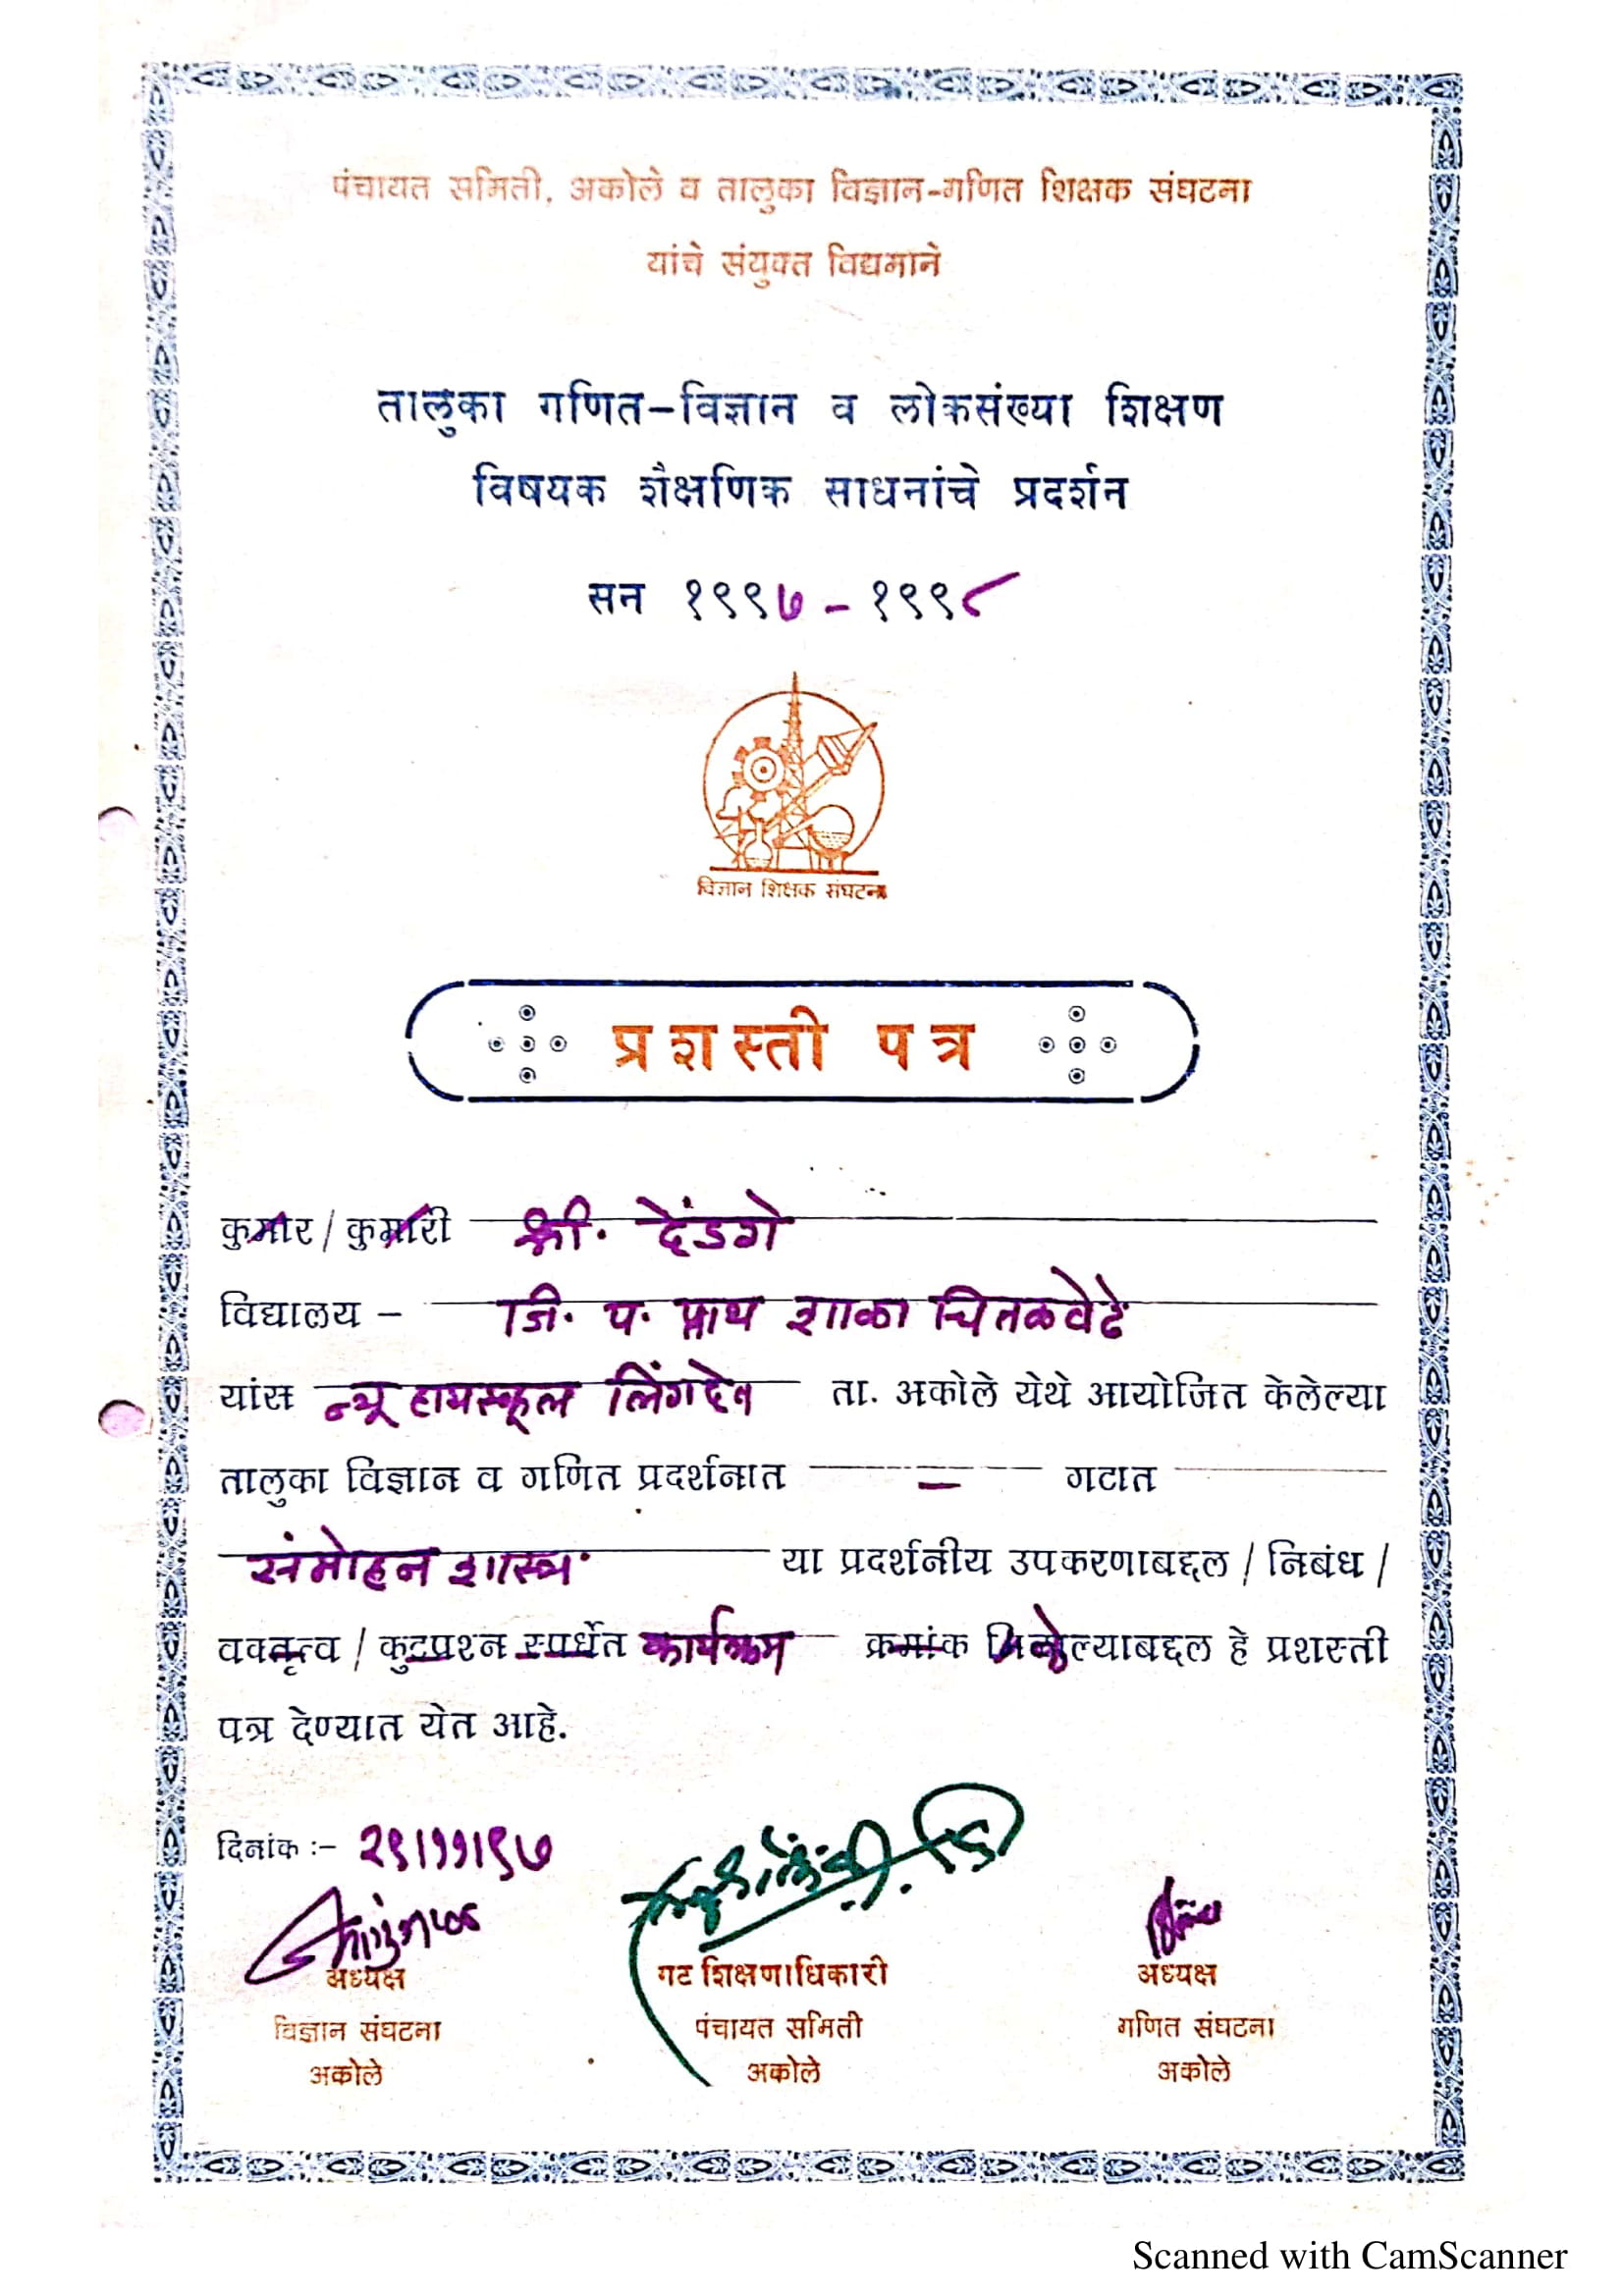 पंचायत समिती, अकोले व तालुका विज्ञान-गणित शिक्षक संघटना
यांचे संयुक्त विद्यमाने
तालुका गणित-विज्ञान व लोकसंख्या शिक्षण
विषयक शैक्षणिक साधनांचे प्रदर्शन
सन १९९७ - १९९८
विज्ञान शिक्षक संघटना
प्रशस्ती पत्र
कुमार / कुमारी श्री. देंडगे
विद्यालय - जि. प. प्राथ शाळा चितळवेढे
यांस न्यू हायस्कूल लिंगदेव ता. अकोले येथे आयोजित केलेल्या
तालुका विज्ञान व गणित प्रदर्शनात - गटात
संमोहन शास्त्र या प्रदर्शनीय उपकरणाबद्दल / निबंध /
वक्तृत्व / कुटप्रश्न स्पर्धेत कार्यक्रम क्रमांक मिळेल्याबद्दल हे प्रशस्ती
पत्र देण्यात येत आहे.
दिनांक :- २९।११।९७
अध्यक्ष गट शिक्षणाधिकारी अध्यक्ष
विज्ञान संघटना पंचायत समिती गणित संघटना
अकोले अकोले अकोले
Scanned with CamScanner